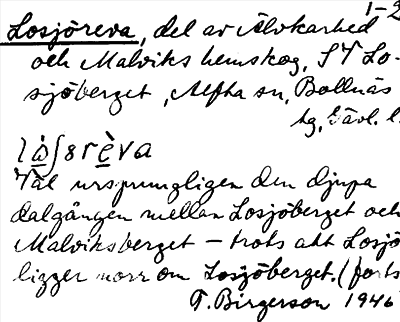 1-2
Losjöreva, del av Älvkarhed
och Malviks hemskog, S V Lo-
sjöberget, Alfta sn, Bollnäs
tg, Gävl. l.
lòʃsrèva
Väl ursprungligen den djupa
dalgången mellan Losjöberget och
Malviksberget – trots att Losjö
ligger norr om Losjöberget. (forts
F. Birgerson 1946